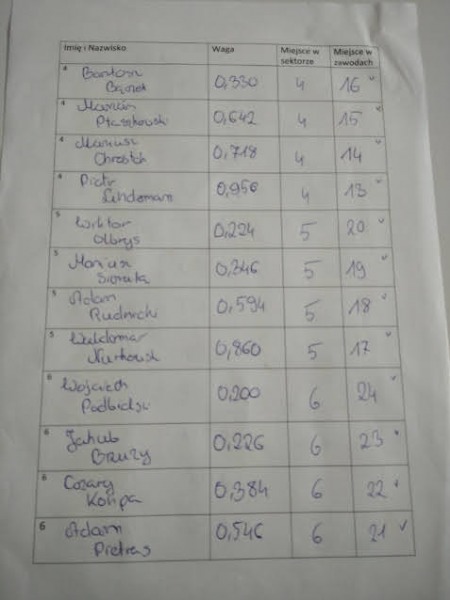 Imię i Nazwisko Waga Miejsce w sektorze Miejsce w zawodach
4 Bartosz 0,330 4 16
4 Marcin Ptaszkowski 0,642 4 15
4 Mariusz Chrostek 0,718 4 14
4 Piotr Lindemann 0,956 4 13
5 Wiktor Olbryś 0,224 5 20
5 Mariusz 0,346 5 19
5 Adam Rudnicki 0,594 5 18
5 Waldemar 0,860 5 17
6 Wojciech Podbielski 0,200 6 24
6 Jakub Bruzy 0,226 6 23
6 Cezary Kolipa 0,384 6 22
6 Adam Pietras 0,546 6 21